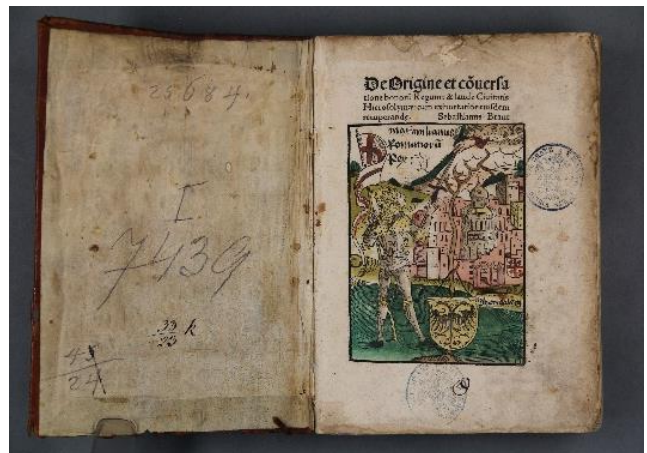 25684.
I
7439
33
23 k
45
24
De Origine et cõuersa
tione bonorũ Regum: & laude Ciuitatis
Hierosolymae: cum exhortatione eiusdem
recuperandę. Sebastianus Brant
Maximilianus
Romanorũ
Rex